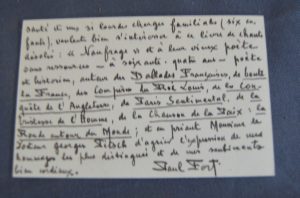 santé et nos si lourdes charges familiales (six en-
fants), veulent bien s'intéresser à ce livre de chants
désolés : « Naufrage » et à leur vieux poète
sans ressources — à soixante-quatre ans — poète
et historien, auteur des Ballades Françaises, de toute
la France, des Compères du Roi Louis, de la Con-
quête de l'Angleterre, de Paris Sentimental, de la
Tristesse de l'Homme, de la Chanson de la Paix, la
Ronde autour du Monde ; et en priant Monsieur le
Docteur Georges d'agréer l'expression de mes
hommages les plus distingués et de mes sentiments
bien cordiaux.
Paul Fort